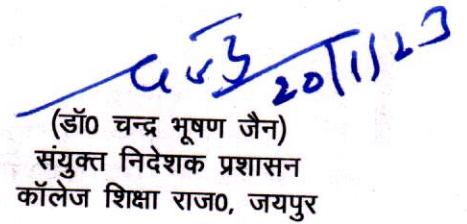 20/1/23
(डॉ0 चन्द्र भूषण जैन)
संयुक्त निदेशक प्रशासन
कॉलेज शिक्षा राज0, जयपुर